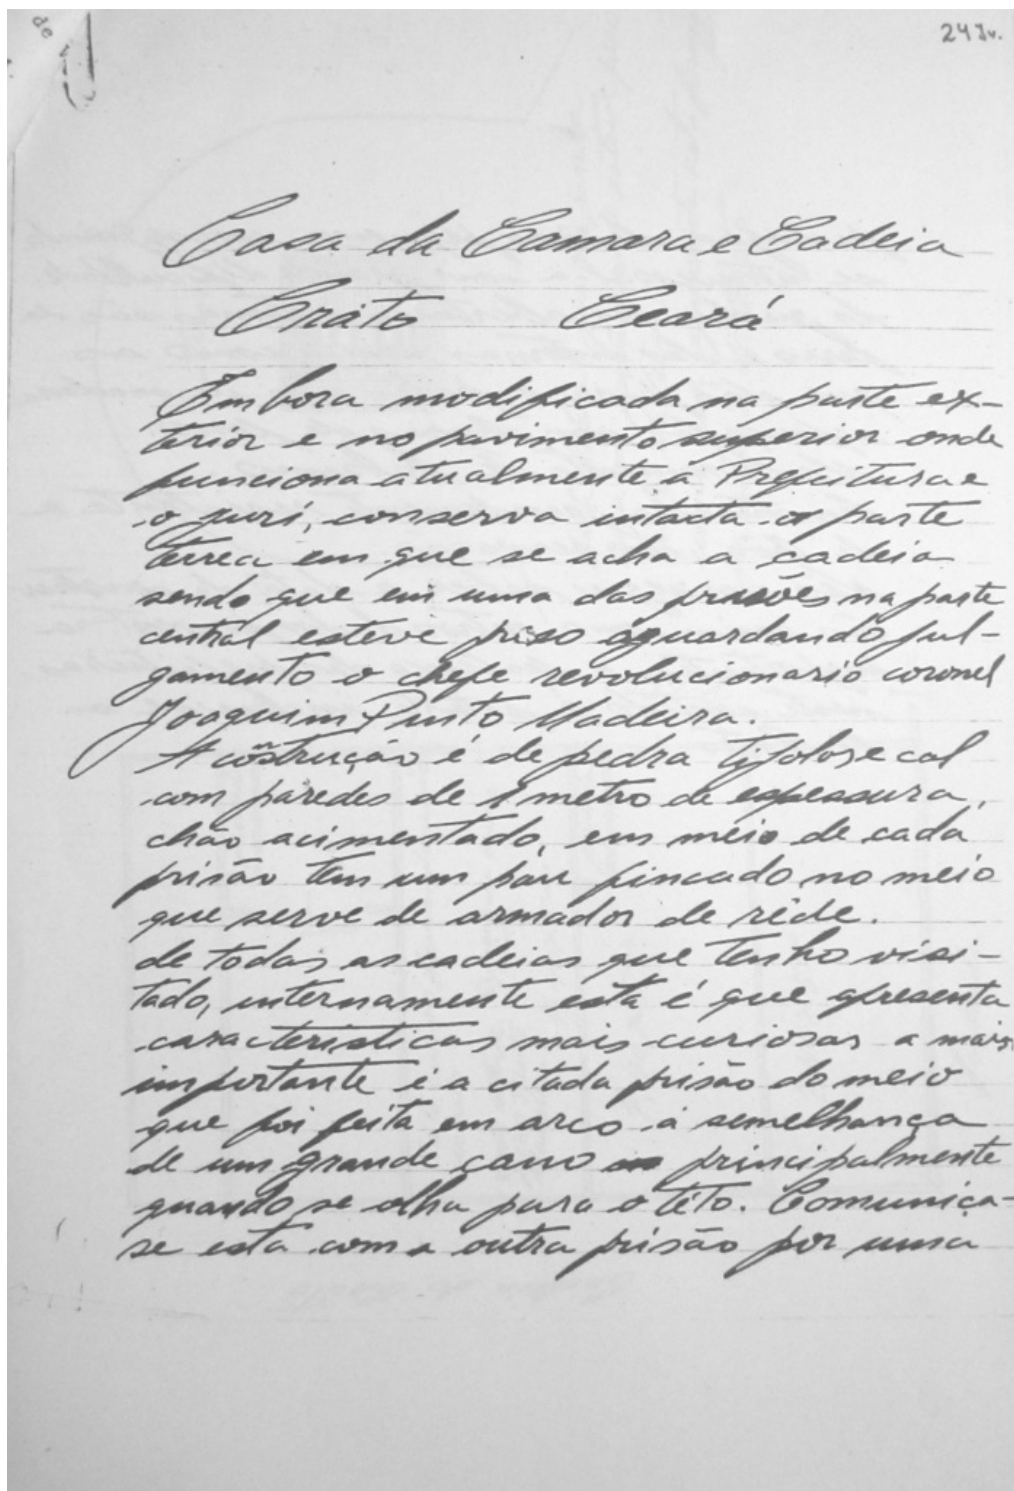 de
24 Jv.
Casa da Camara e Cadeia
Crato Ceará
Embora modificada na parte ex-
terior e no pavimento superior onde
funciona atualmente a Prefeitura e
o juri, conserva intacta a parte
terrea em que se acha a cadeia
sendo que em uma das prisões na parte
central esteve priso aguardando jul-
gamento o chefe revolucionario coronel
Joaquim Pinto Madeira.
A construção é de pedra tijolos e cal
com paredes de 1 metro de espessura,
chão acimentado, em meio de cada
prisão tem um pau fincado no meio
que serve de armador de rêde.
de todas as cadeias que tenho visi-
tado, internamente esta é que apresenta
caracteristicas mais curiosas a mais
importante é a citada prisão do meio
que foi feita em arco á semelhança
de um grande cano principalmente
quando se olha para o této. Comunica-
se esta com a outra prisão por uma